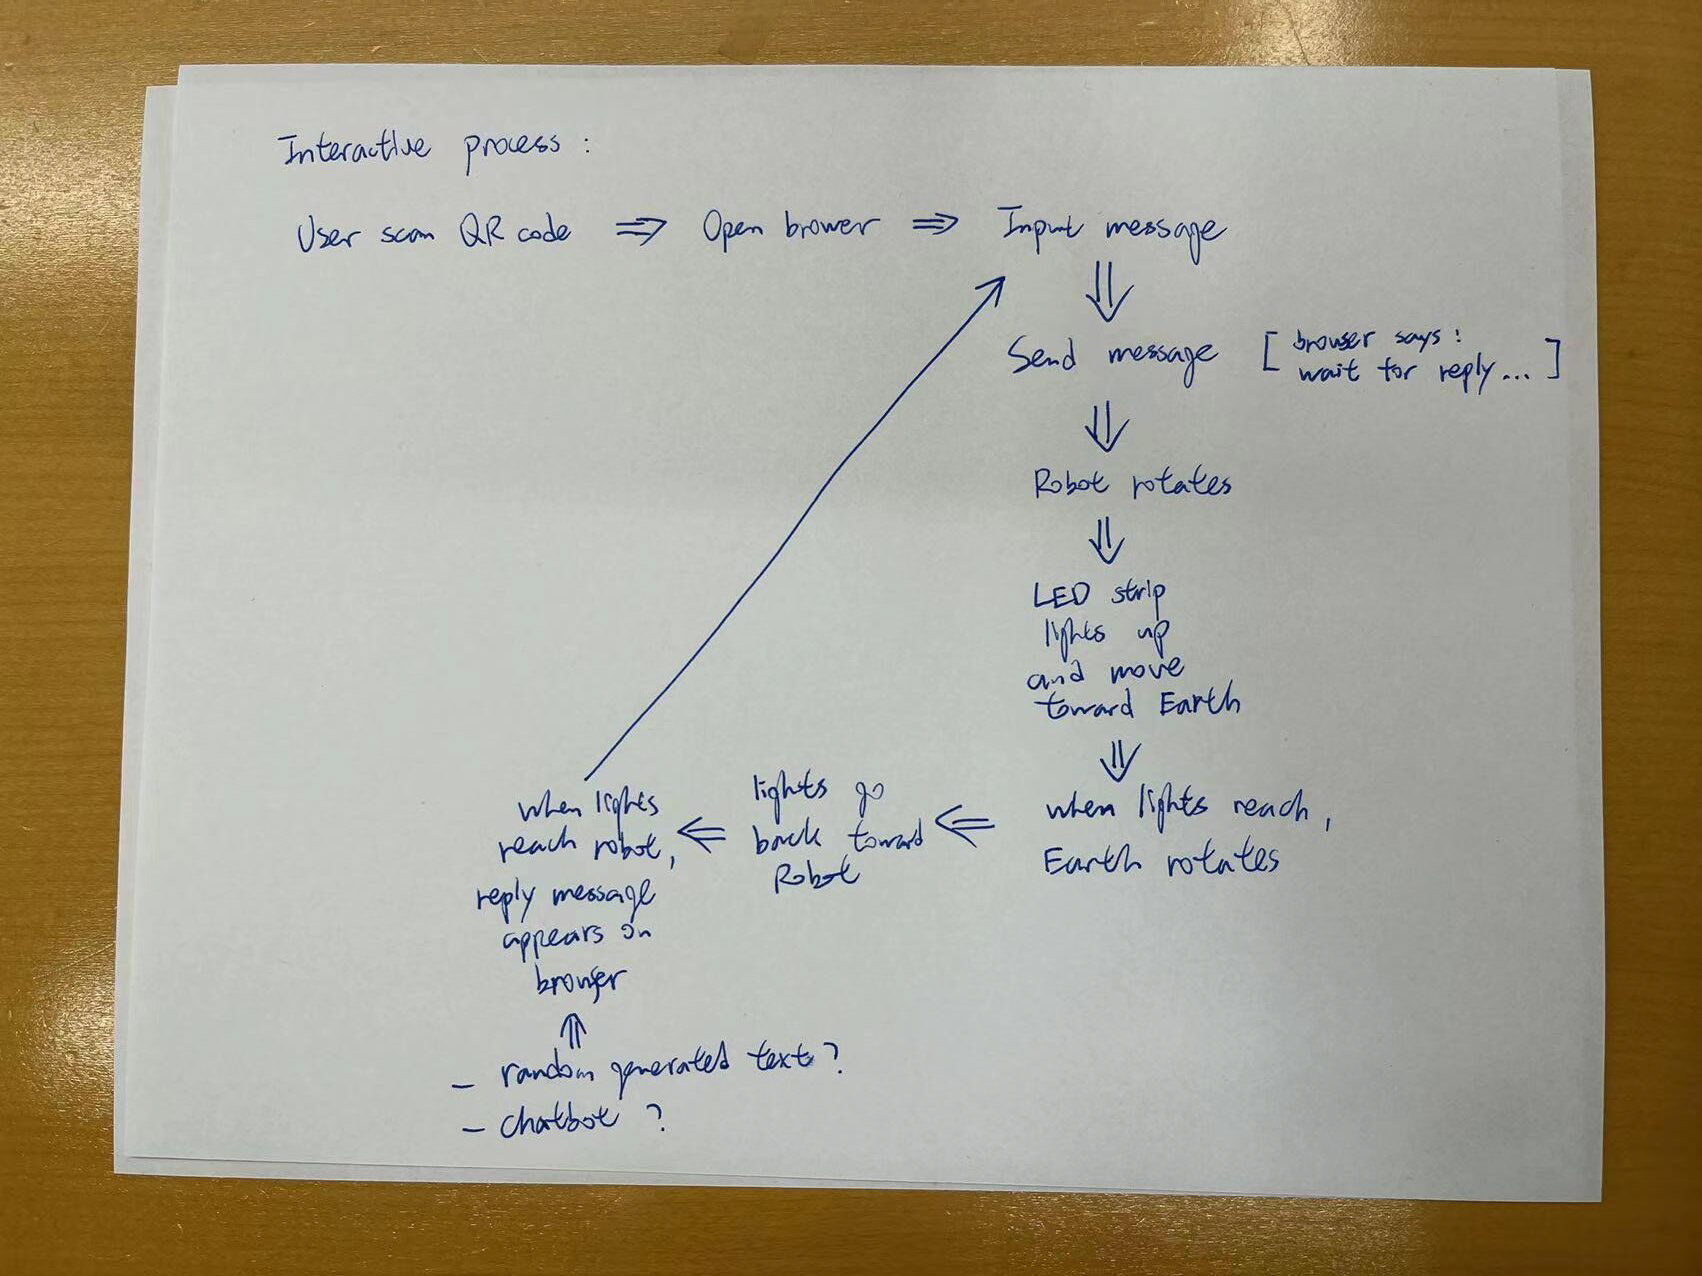 Interactive process :
User scan QR code ⇒ Open brower ⇒ Input message
Send message [ browser says :
wait for reply ... ]
Robot rotates
LED strip
lights up
and move
toward Earth
when lights reach ,
Earth rotates
lights go
back toward
Robot
when lights
reach robot,
reply message
appears on
browser
- random generated text ?
- chatbot ?